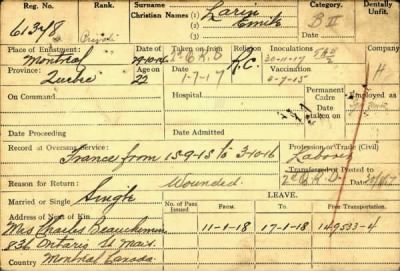 Reg. No. Rank. Surname Larin Category. Dentally Unfit.
Christian Names (1) Emile B II
(2)
61348 Private
Place of Enlistment: Date of Taken on from R.C. Inoculations Company
Montreal 19-10-14 2nd C.R.D. 20-11-17 H
Quebec Age on 22 1-7-17 Vaccination
On Command Hospital, Permanent Cadre Employed as
Date of
Date Proceeding Date Admitted taken on
Record at Overseas Service: Profession or Trade (Civil)
France from 15-9-15 to 3-10-16 Laborer
Transferred to Posted to Date
Reason for Return Wounded. 2nd C.R.D.
Married or Single Single LEAVE.
Address of Next of Kin No. of Pass Issued From To Free Transportation.
Mrs Charles Beauchemin 11-1-18 17-1-18 149533-4
836 Ontario St
Country Montreal Canada.